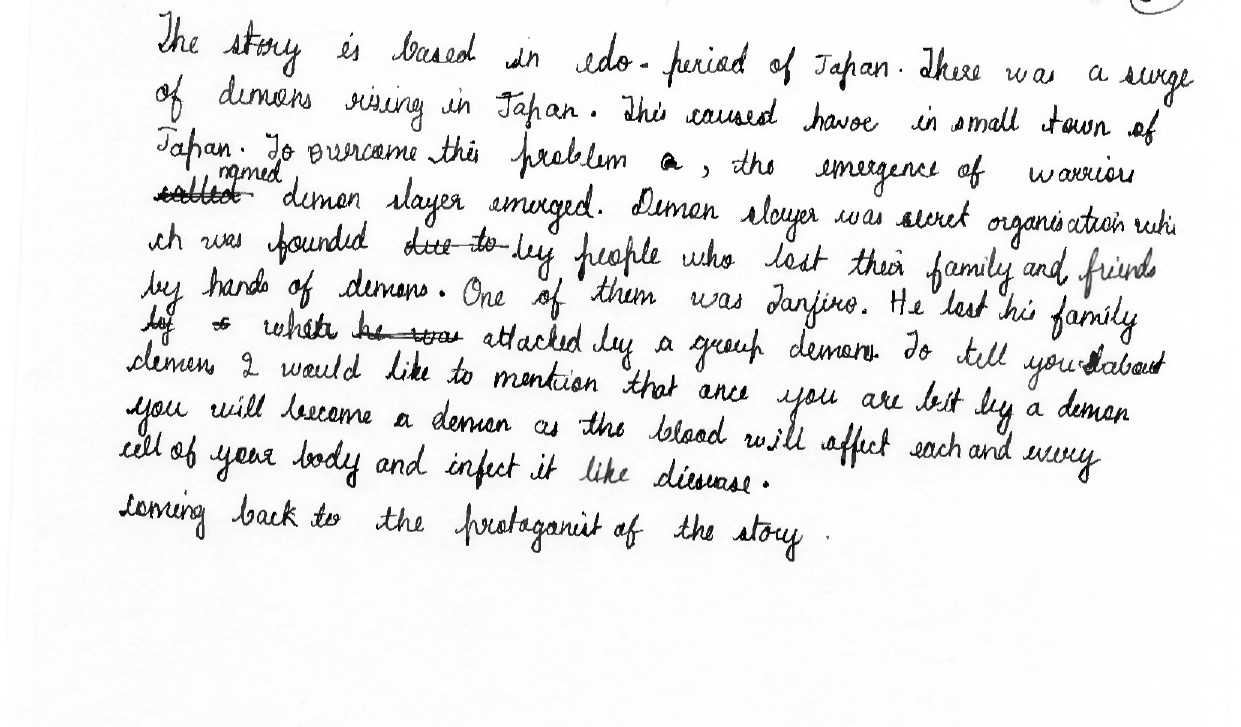 The story is based in edo-period of Japan. There was a surge
of demons rising in Japan. This caused havoc in small town of
Japan. To overcome this problem a, the emergence of warriors
called named demon slayer emerged. Demon slayer was secret organisation whi
ch was founded due to by people who lost their family and friends
by hands of demons. One of them was Tanjiro. He lost his family
by when he was attacked by a group demons. To tell you about
demons I would like to mention that once you are bit by a demon
you will become a demon as the blood will affect each and every
cell of your body and infect it like diesease.
coming back to the protaganist of the story.